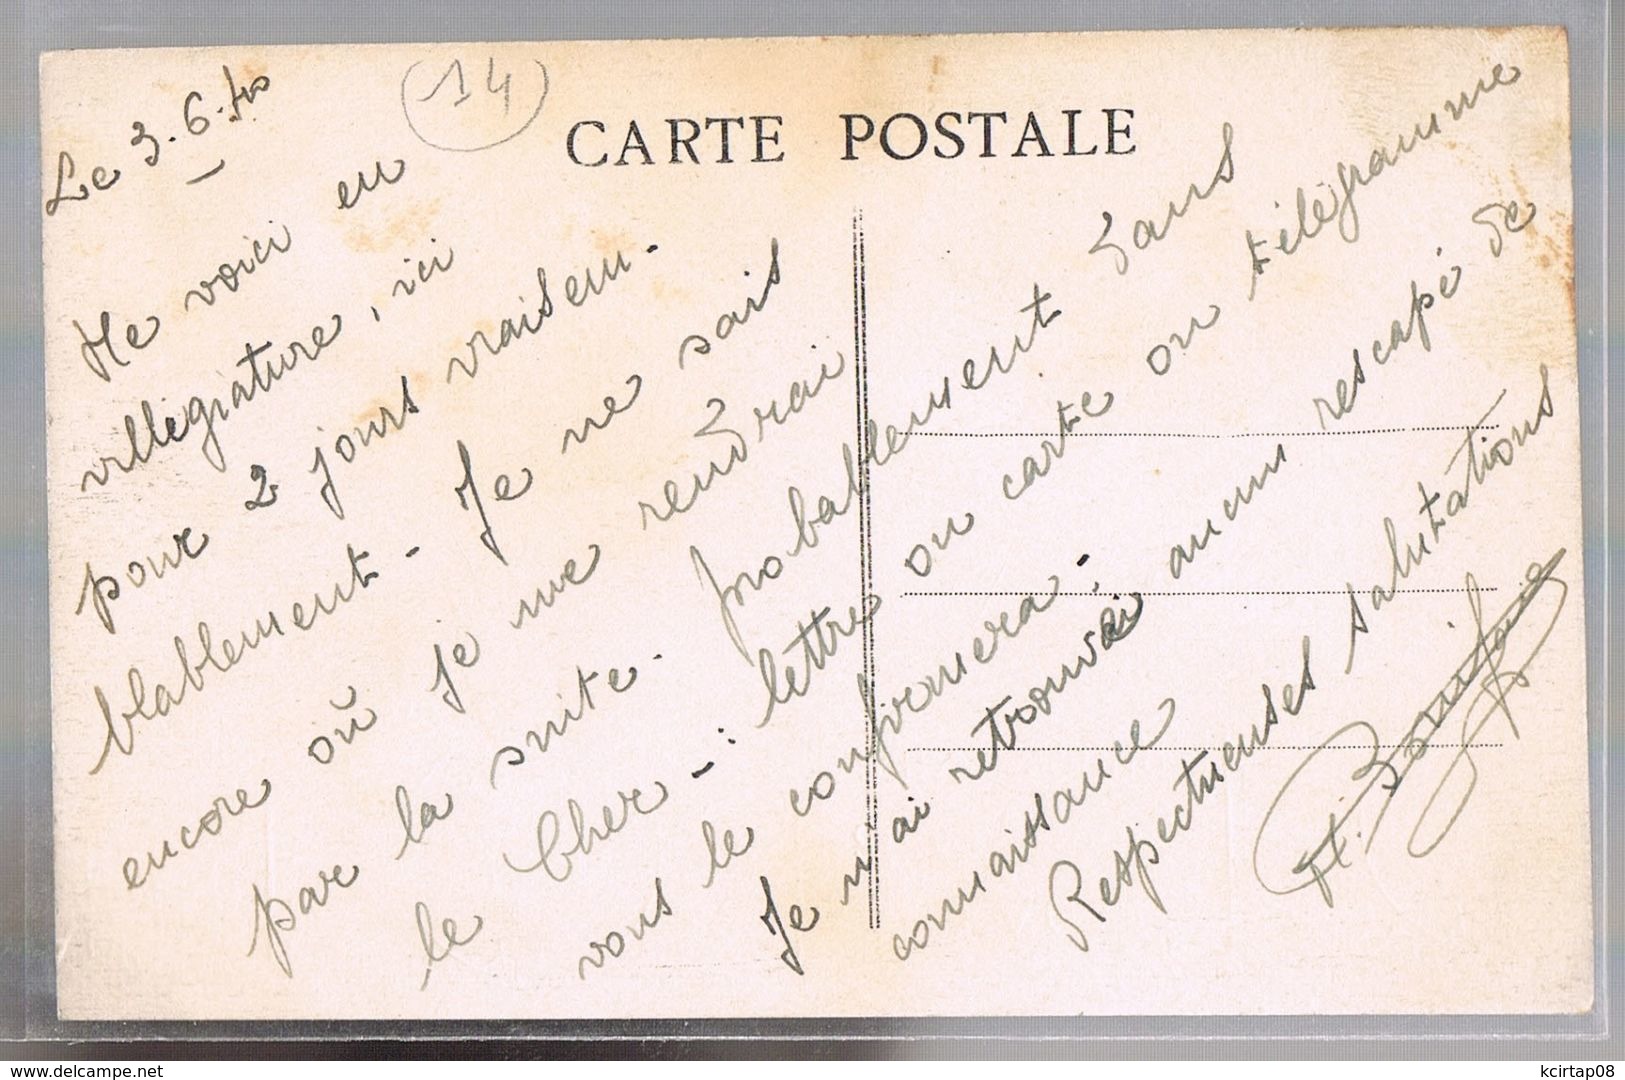 Le 3.6.40
14
CARTE POSTALE
Me voici en
villégiature, ici
pour 2 jours vraisem-
blablement. Je ne sais
encore où je me rendrai
par la suite. probablement dans
le Cher -: lettre ou carte ou télégramme
vous le confirmera.
Je n'ai retrouvé aucun rescapé de
connaissance
Respectueuses salutations
www.delcampe.net
kcirtap08